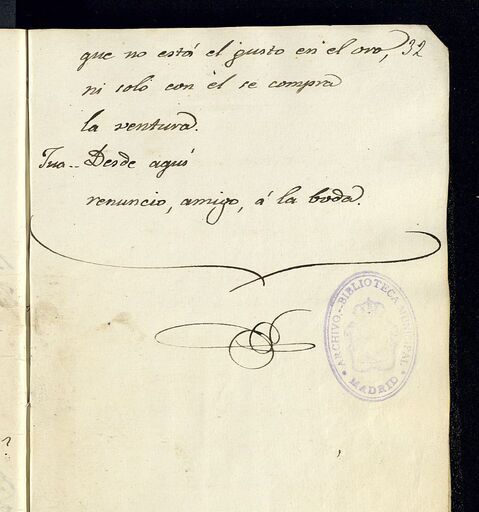 que no está el gusto en el oro, 32
ni solo con el se compra
la ventura.
Jua.. Desde aqui
renuncio, amigo, á la boda.
ARCHIVO-BIBLIOTECA MUNICIPAL
MADRID